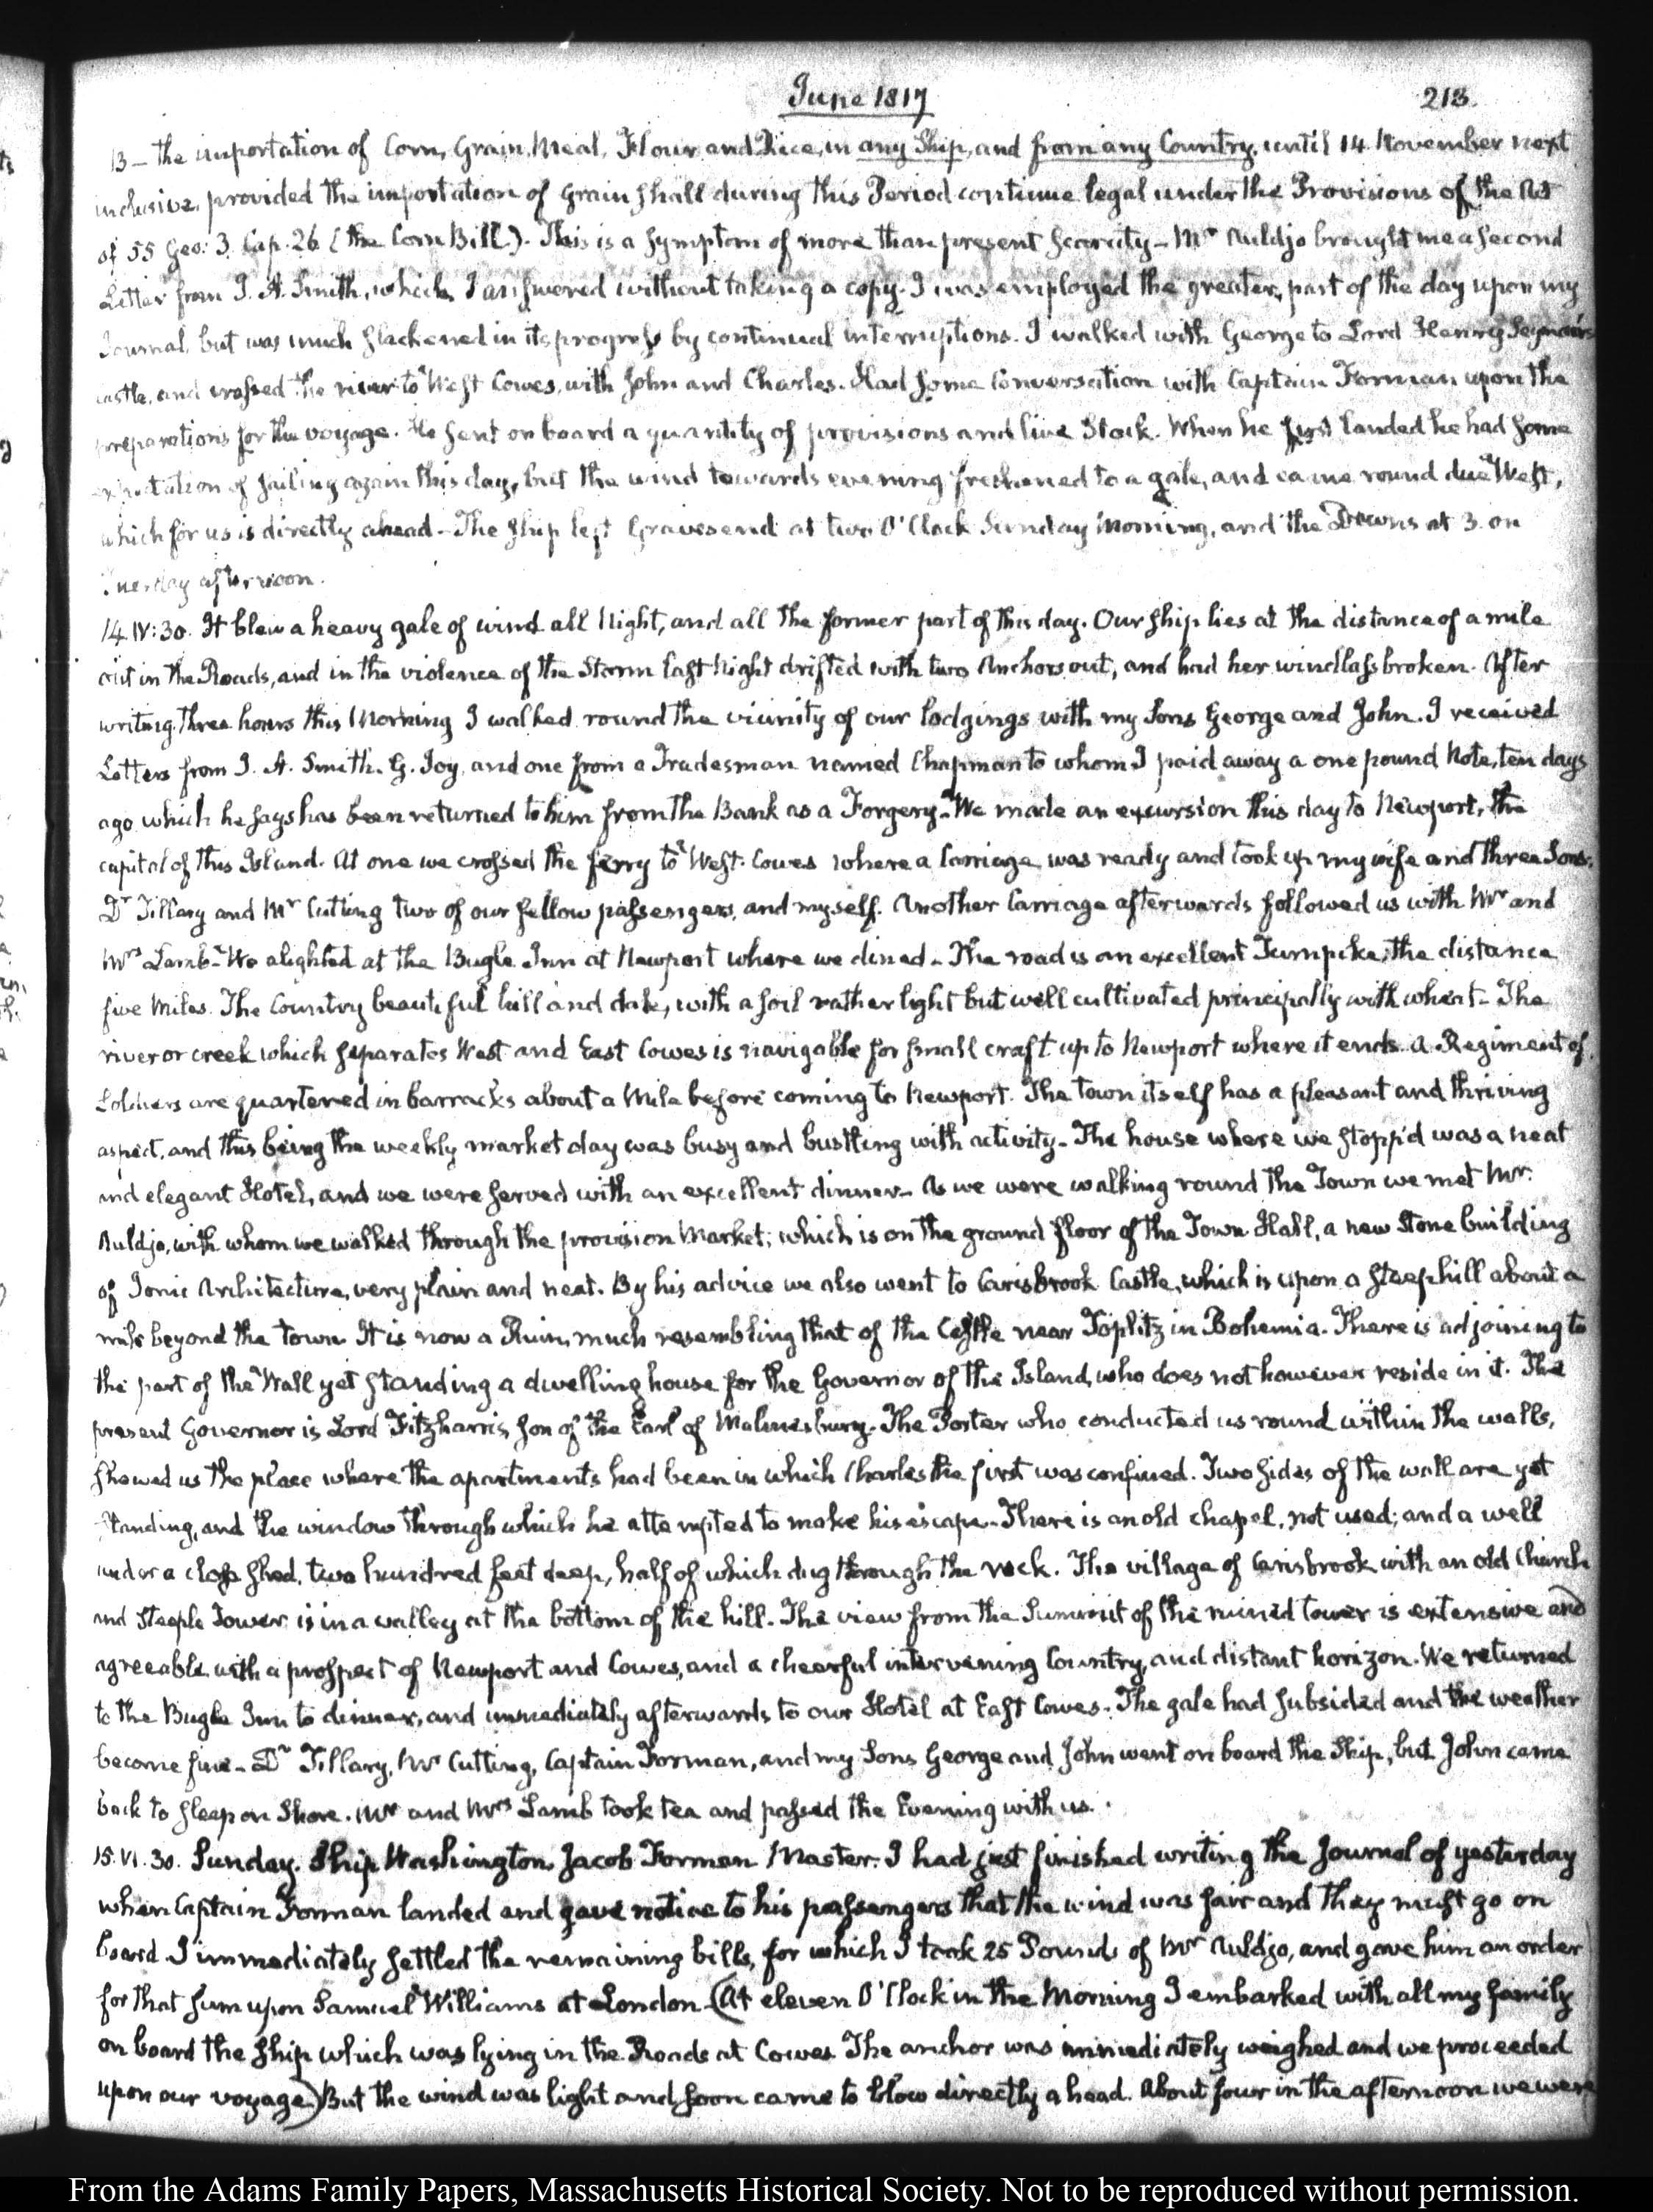 June 1817
213.
13 — the importation of Corn, Grain, Meal, Flour and Rice, in any Ship, and from any Country, until 14 November next
inclusive, provided the importation of Grain shall during this Period continue legal under the Provisions of the Act
of 55 Geo: 3. Cap. 26 (the Corn Bill). This is a symptom of more than present scarcity — Mr Auldjo brought me a second
Letter from J. A. Smith, which I answered without taking a copy. I was employed the greater part of the day upon my
Journal, but was much slackened in its progress by continual interruptions. I walked with George to Lord Henry Seymour's
castle, and crossed the river to West Cowes, with John and Charles. Had some Conversation with Captain Forman upon the
preparations for the voyage. He sent on board a quantity of provisions and live Stock. When he first landed he had some
expectation of sailing again this day, but the wind towards evening freshened to a gale, and came round due West,
which for us is directly ahead — The Ship left Gravesend at two O'Clock Sunday Morning, and the Downs at 3. on
Tuesday afternoon.
14. IV: 30. It blew a heavy gale of wind all Night, and all the former part of this day. Our ship lies at the distance of a mile
out in the Roads, and in the violence of the Storm last Night drifted with two Anchors out, and had her windlass broken. After
writing three hours this Morning I walked round the vicinity of our lodgings with my Sons George and John. I received
Letters from J. A. Smith. G. Joy, and one from a Tradesman named Chapman to whom I paid away a one pound Note, ten days
ago which he says has been returned to him from the Bank as a Forgery — We made an excursion this day to Newport, the
capital of this Island. At one we crossed the ferry to West-Cowes where a Carriage was ready and took up my wife and three Sons,
Dr Tillary and Mr Cutting two of our fellow passengers, and myself. Another Carriage afterwards followed us with Mr and
Mrs Lamb — We alighted at the Bugle Inn at Newport where we dined — The road is an excellent Turnpike; the distance
five Miles. The Country beautiful hill and dale, with a soil rather light but well cultivated principally with wheat — The
river or creek which separates West and East Cowes is navigable for small craft up to Newport where it ends. A Regiment of
Soldiers are quartered in barracks about a Mile before coming to Newport. The town itself has a pleasant and thriving
aspect, and this being the weekly market day was busy and bustling with activity — The house where we stopp'd was a neat
and elegant Hotel, and we were served with an excellent dinner — As we were walking round the Town we met Mr.
Auldjo, with whom we walked through the provision Market; which is on the ground floor of the Town Hall, a new Stone building
of Ionic Architecture, very plain and neat. By his advice we also went to Carisbrook Castle, which is upon a steep hill about a
mile beyond the town. It is now a Ruin, much resembling that of the Castle near Töplitz in Bohemia. There is adjoining to
the part of the Wall yet standing a dwelling house for the Governor of the Island, who does not however reside in it. The
present Governor is Lord Fitzharris, son of the Earl of Malmesbury. The Porter who conducted us round within the walls,
showed us the place where the apartments had been in which Charles the first was confined. Two sides of the wall are yet
standing, and the window through which he attempted to make his escape — There is an old chapel, not used; and a well
under a close shed, two hundred feet deep, half of which dug through the rock. The village of Carisbrook with an old Church
and Steeple Tower is in a valley at the bottom of the hill. The view from the Summit of the ruined tower is extensive and
agreeable, with a prospect of Newport and Cowes, and a cheerful intervening Country, and distant horizon. We returned
to the Bugle Inn to dinner, and immediately afterwards to our Hotel at East Cowes. The gale had subsided and the weather
become fine — Dr Tillary, Mr Cutting, Captain Forman, and my Sons George and John went on board the Ship, but John came
back to sleep on Shore. Mr and Mrs Lamb took tea and passed the Evening with us.
15. VI. 30. Sunday. Ship Washington, Jacob Forman Master. I had just finished writing the Journal of yesterday
when Captain Forman landed and gave notice to his passengers that the wind was fair and they must go on
board. I immediately settled the remaining bills, for which I took 25 Pounds of Mr Auldjo, and gave him an order
for that sum upon Samuel Williams at London. (At eleven O'Clock in the Morning I embarked with all my family
on board the ship which was lying in the Roads at Cowes. The anchor was immediately weighed and we proceeded
upon our voyage) But the wind was light and soon came to blow directly ahead. About four in the afternoon we were
From the Adams Family Papers, Massachusetts Historical Society. Not to be reproduced without permission.